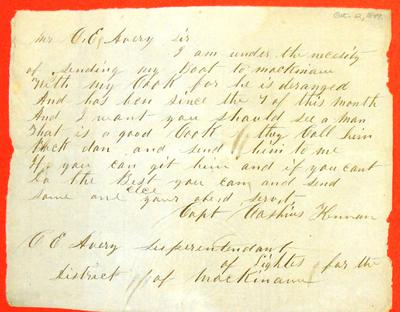 Oct. 12, 1849.
Mr C. E. Avery Sir
I am under the necisity
of sending my Boat to Mackinaw
With my Cook for he is deranged
And has ben since the 7 of this month
And I want you should see a man
That is a good Cook they Call him
Black dan and send him to me
If you can git him and if you cant
Do the Best you can and send
some one elce your obed servt
Capt Hennan
C E Avery superentendant
of Lightes for the
District of Mackinaw